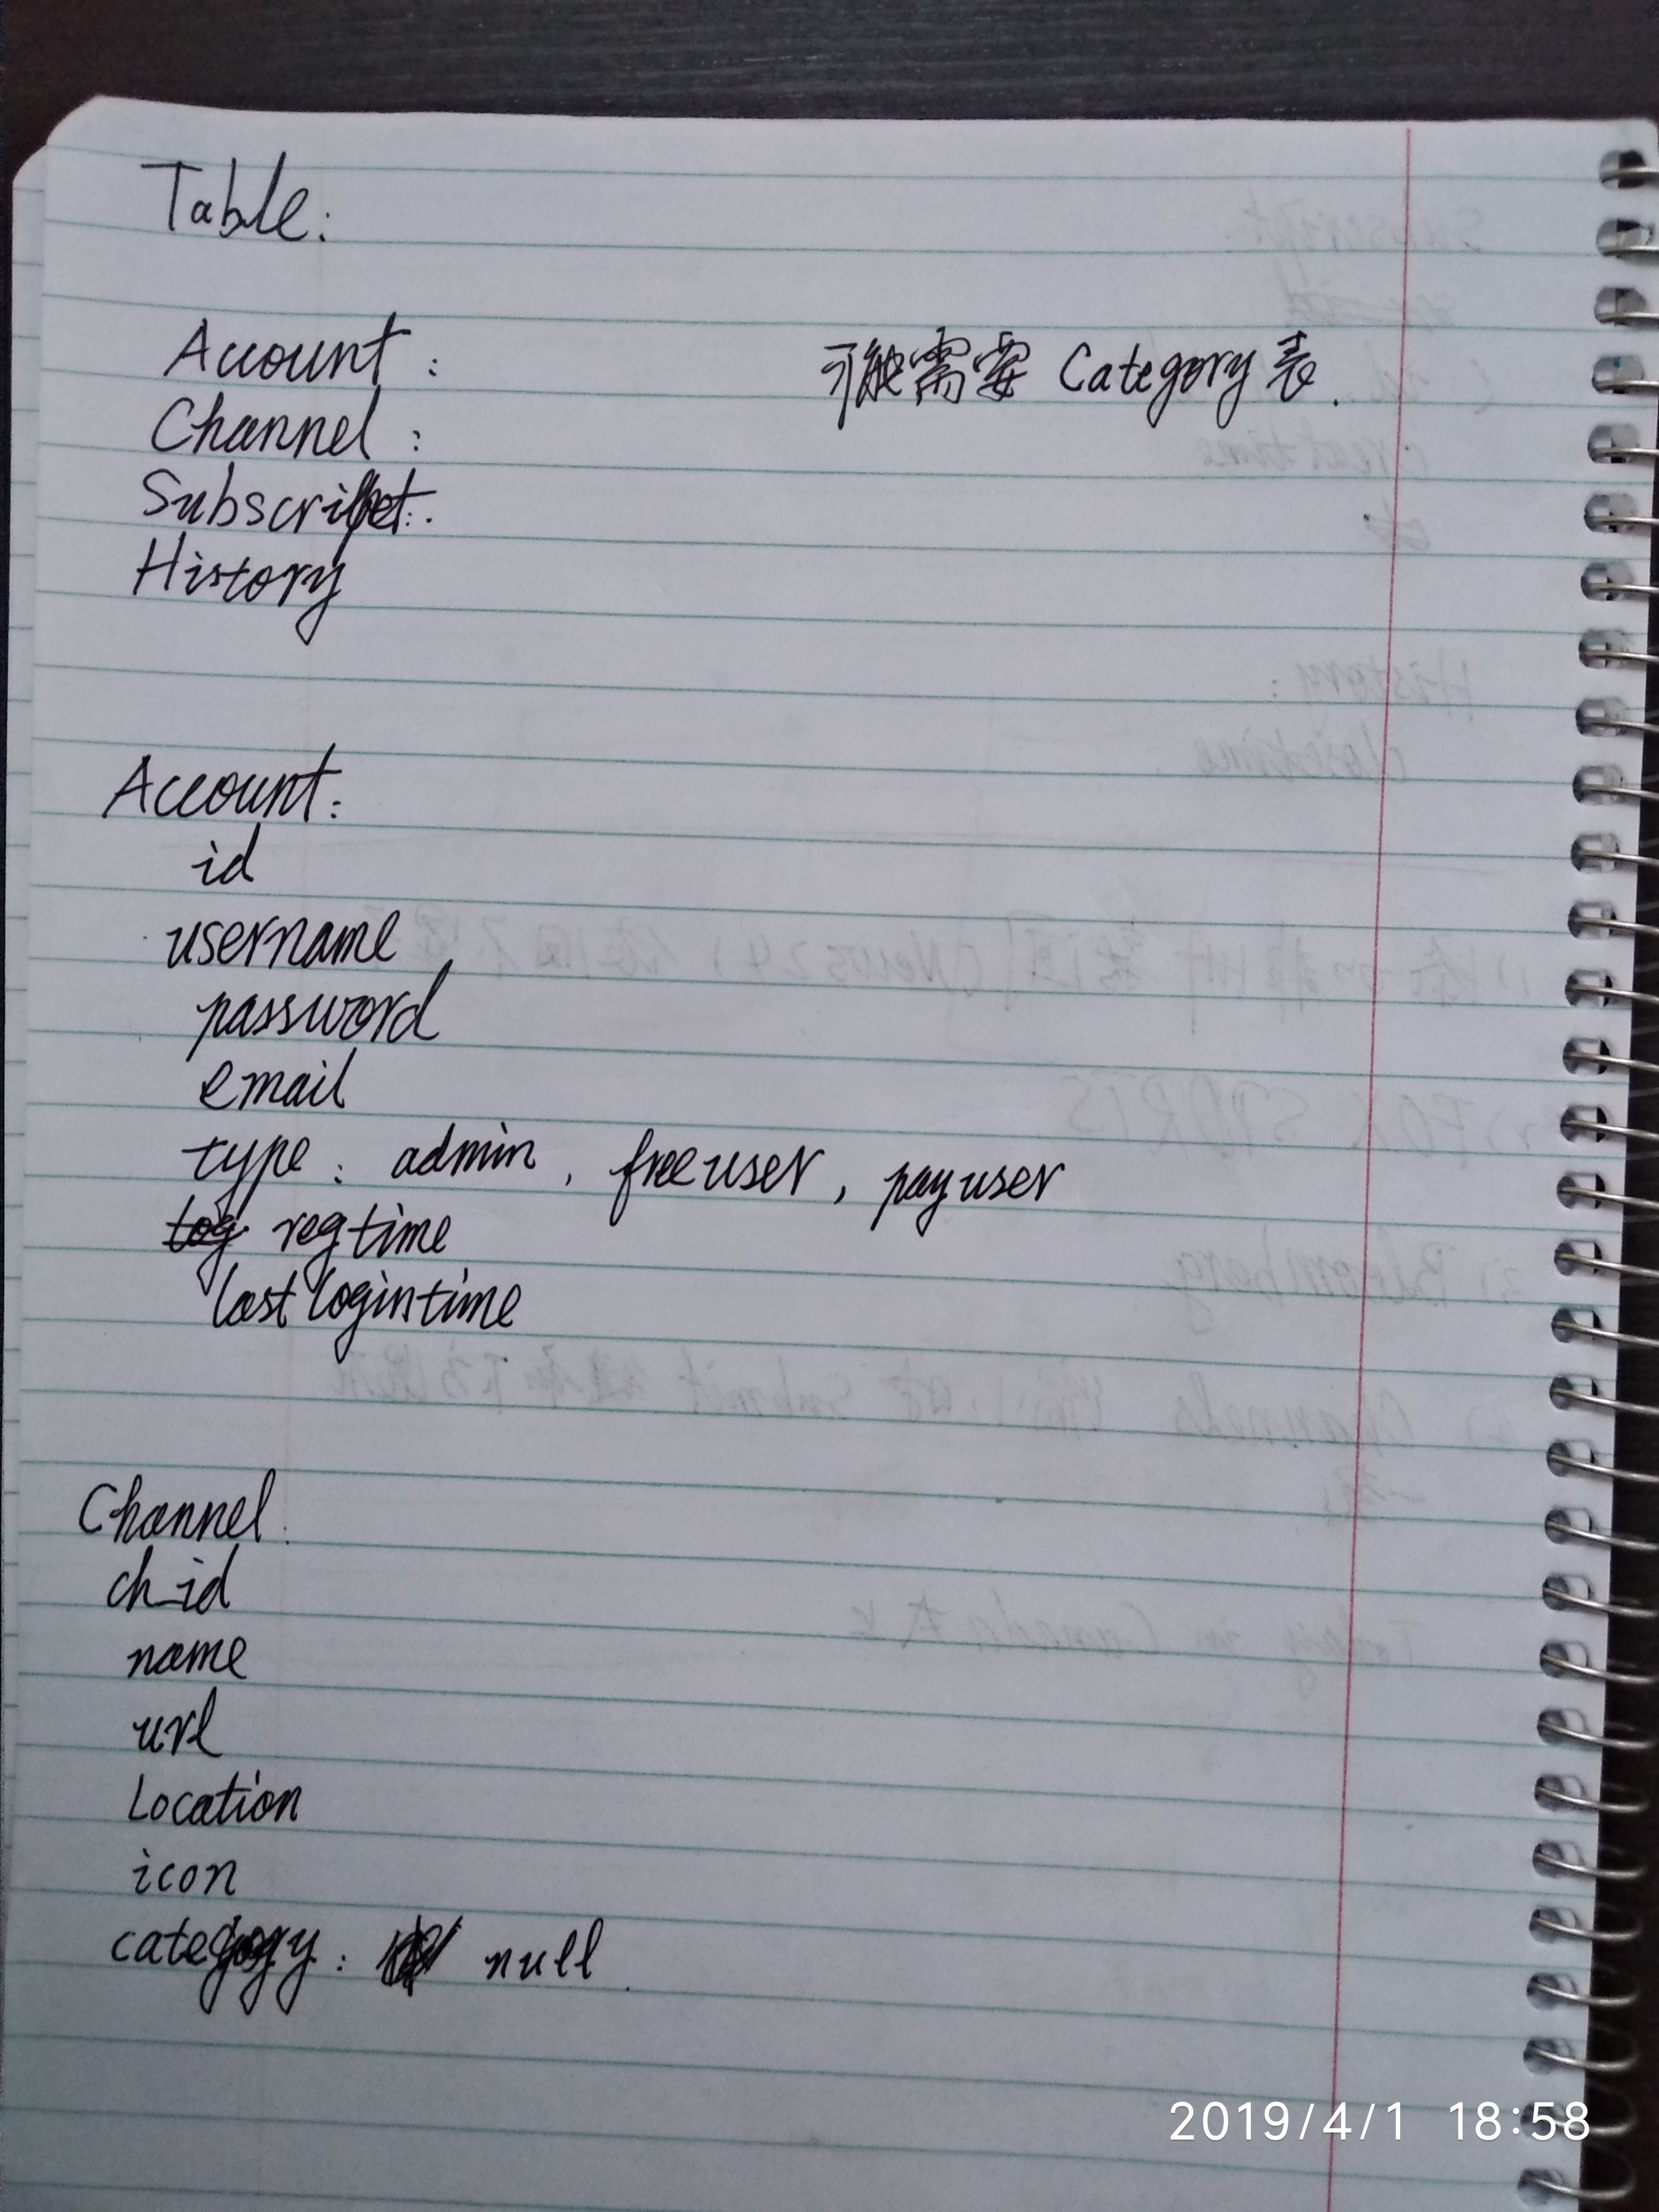 Table:
Account :
可能需要 Category 表.
Channel :
Subscript:
History
Account:
id
username
password
email
type : admin, freeuser, payuser
regtime
last logintime
Channel.
ch_id
name
url
Location
icon
category : null.
2019/4/1 18:58